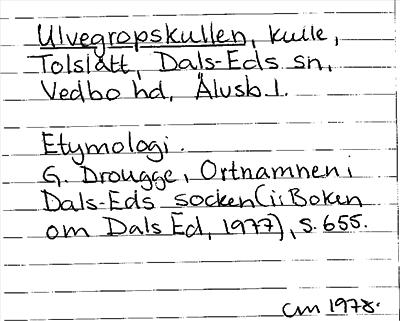 Ulvegropskullen, kulle,
Tolslätt, Dals-Eds sn,
Vedbo hd, Älvsb. l.
Etymologi.
G. Drougge, Ortnamnen i
Dals-Eds socken (i: Boken
om Dals Ed, 1977), s. 655.
cm 1978.